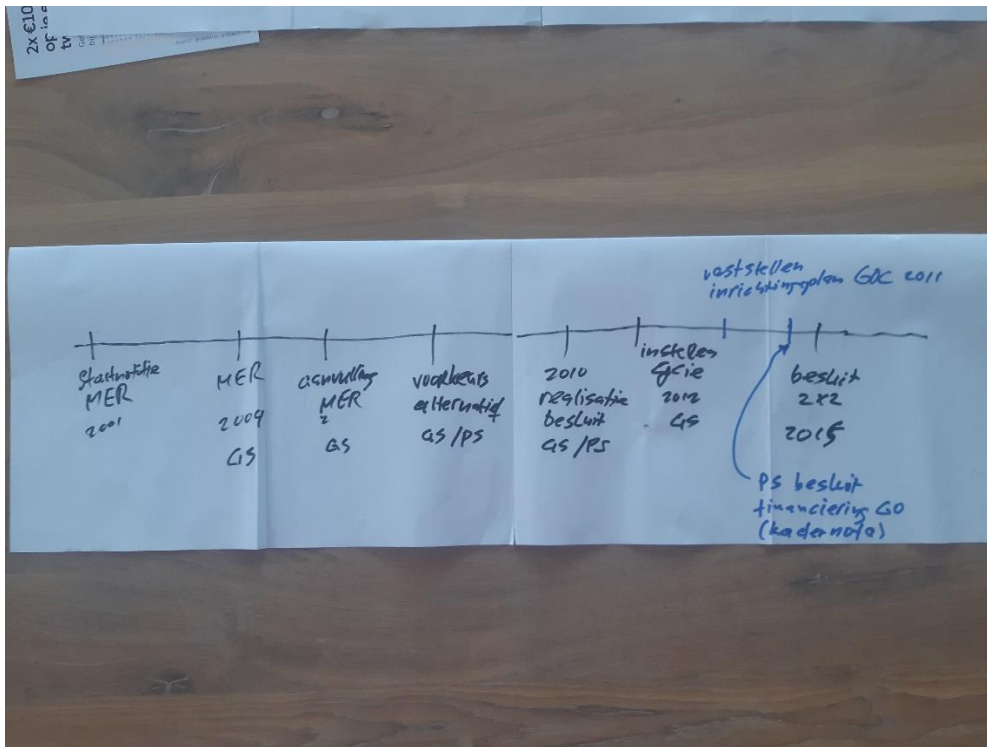 2x €10
op
vaststellen
inrichtingsplan GOC 2011
startnotitie
MER
2001
MER
2009
GS
aanvulling
MER
2
GS
voorkeurs
alternatief
GS/PS
2010
realisatie
besluit
GS/PS
instellen
Gcie
2012
GS
besluit
2x2
2015
PS besluit
financiering GO
(kadernota)